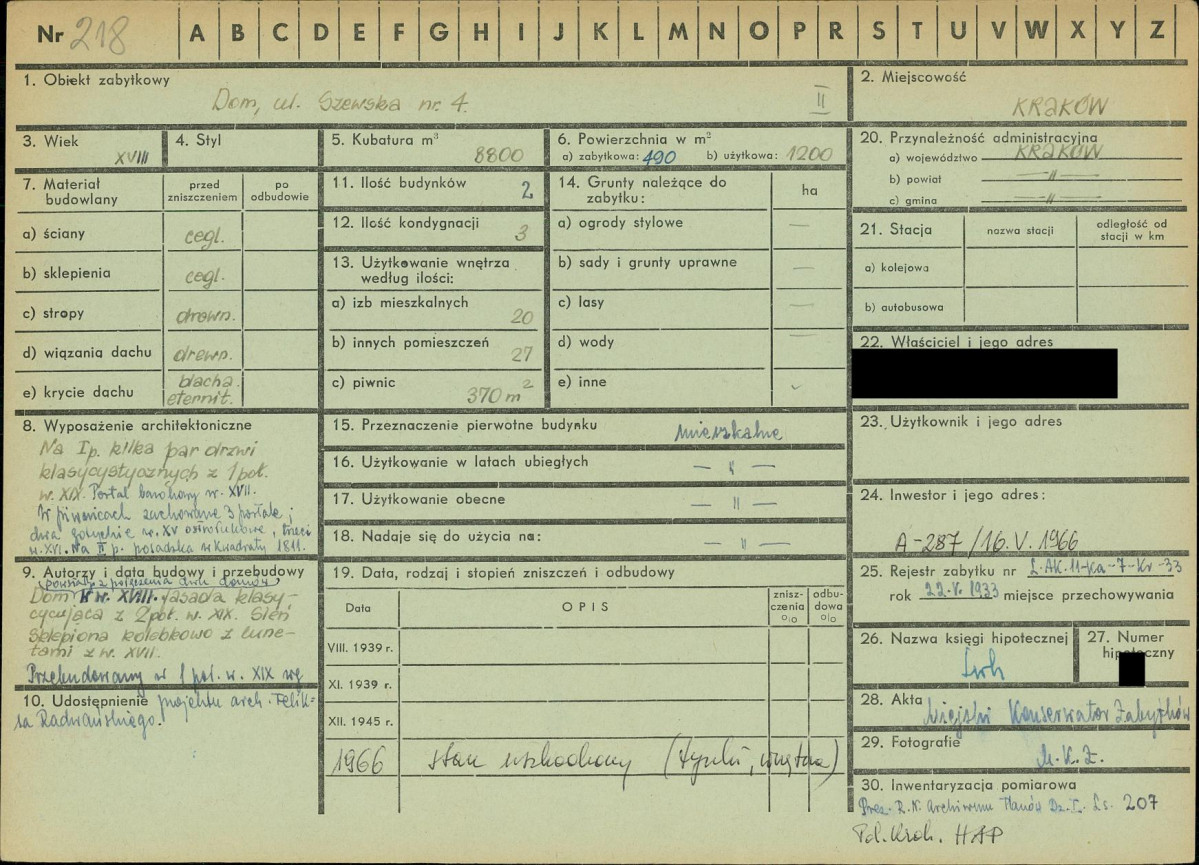 Nr 218 A B C D E F G H I J K L M N O P R S T U V W X Y Z
1. Obiekt zabytkowy
Dom, ul. Szewska nr. 4. II
2. Miejscowość
KRAKÓW
3. Wiek
XVIII
4. Styl
5. Kubatura m³
8800
6. Powierzchnia w m²
a) zabytkowa: 490 b) użytkowa: 1200
20. Przynależność administracyjna
a) województwo KRAKÓW
b) powiat —〃—
c) gmina —〃—
7. Materiał budowlany
przed zniszczeniem
po odbudowie
a) ściany cegl.
b) sklepienia cegl.
c) stropy drewn.
d) wiązania dachu drewn.
e) krycie dachu blacha. eternit.
11. Ilość budynków 2
12. Ilość kondygnacji 3
13. Użytkowanie wnętrza
według ilości:
a) izb mieszkalnych 20
b) innych pomieszczeń 27
c) piwnic 370 m²
14. Grunty należące do
zabytku: ha
a) ogrody stylowe —
b) sady i grunty uprawne —
c) lasy —
d) wody —
e) inne
21. Stacja
nazwa stacji
odległość od
stacji w km
a) kolejowa
b) autobusowa
22. Właściciel i jego adres
8. Wyposażenie architektoniczne
Na I p. kilka par drzwi
klasycystycznych z 1 poł.
w. XIX. Portal barokowy w. XVII.
W piwnicach zachowane 3 portale;
dwa gotyckie w. XV ostrołukowe, trzeci
w. XVI. Na II p. posadzka w kwadraty 1811.
15. Przeznaczenie pierwotne budynku mieszkalne
16. Użytkowanie w latach ubiegłych —〃—
17. Użytkowanie obecne —〃—
18. Nadaje się do użycia na: —〃—
23. Użytkownik i jego adres
24. Inwestor i jego adres:
A-287/16.V.1966
25. Rejestr zabytku nr L.AK.11-Ka-7-Kr-33
rok 22.V.1933 miejsce przechowywania
9. Autorzy i data budowy i przebudowy
(powstały z połączenia dwu domów)
Dom w. XVIII. fasada klasy-
cycująca z 2 poł. w. XIX. Sień
sklepiona kolebkowo z lune-
tami z w. XVII.
Przebudowany w 1 poł. w. XIX wg
10. Udostępnienie projektu arch. Felik-
sa Radwańskiego.
19. Data, rodzaj i stopień zniszczeń i odbudowy
Data
OPIS
znisz-
czenia
%
odbu-
dowa
%
VIII. 1939 r.
XI. 1939 r.
XII. 1945 r.
1966 stan uszkodzony (tynki, wnętrza)
26. Nazwa księgi hipotecznej
Lwh
27. Numer
hipoteczny
28. Akta Miejski Konserwator Zabytków
29. Fotografie M.K.Z.
30. Inwentaryzacja pomiarowa
Prez. R.N. Archiwum Planów Dz. I. Ls. 207
HAP